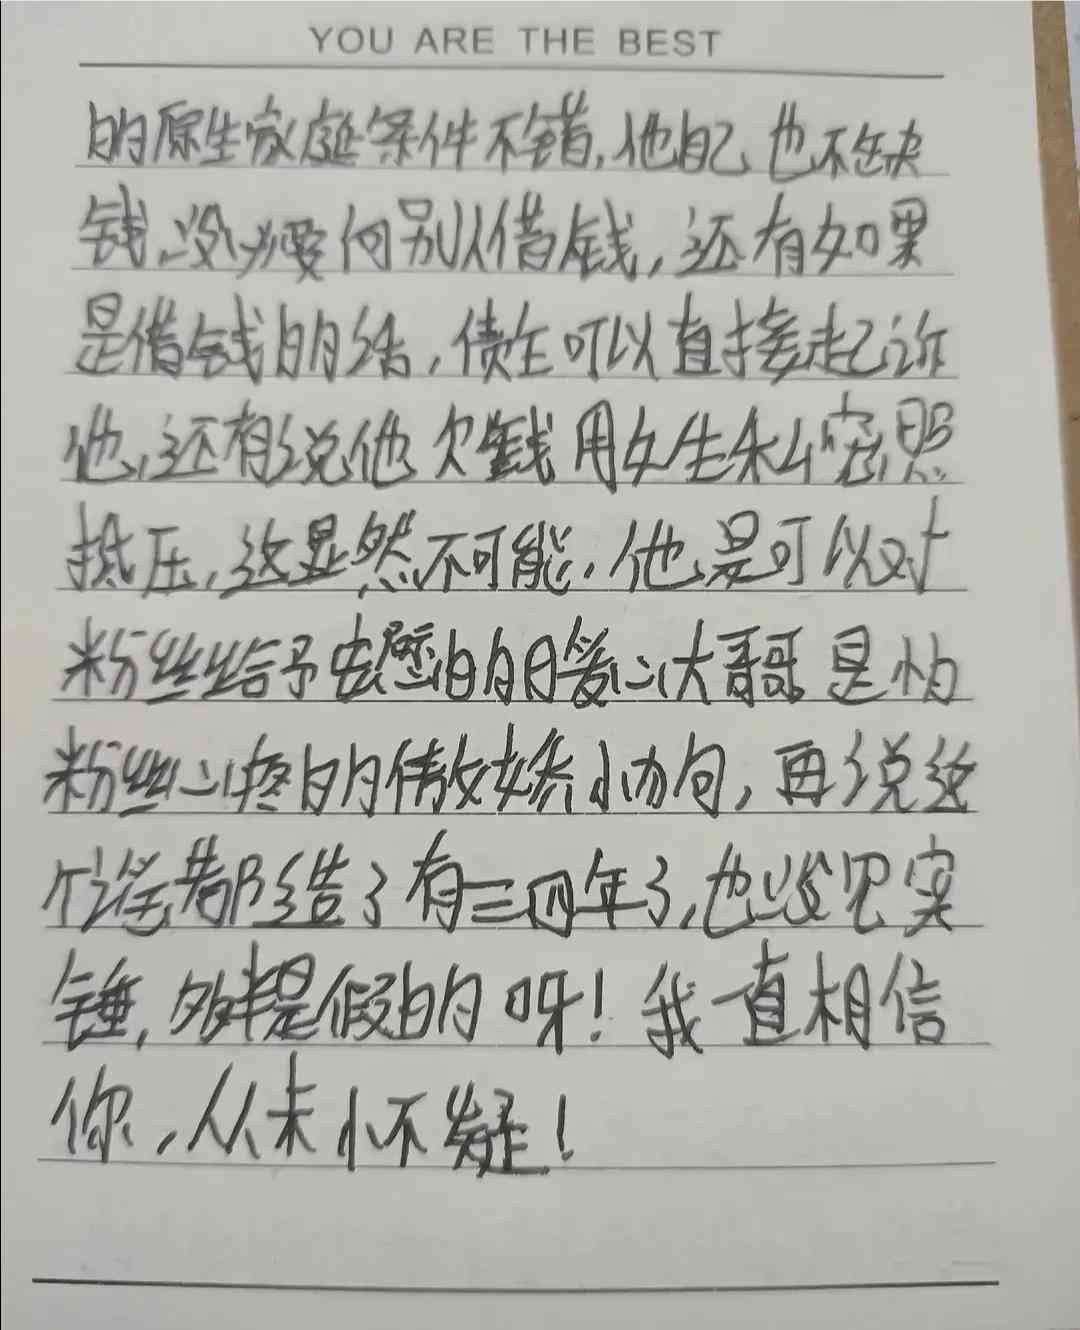 YOU ARE THE BEST
的原生家庭条件不错,他自己也不缺
钱,没必要向别人借钱,还有如果
是借钱的话,债主可以直接起诉
他,还有说他欠钱用女生私密照
抵压,这显然不可能,他是可以对
粉丝给予庇的日大哥哥是怕
粉丝心疼的傲娇小狗,再说这
个谣都造了有三四年了,也没见实
锤,多半是假的呀!我一直相信
你,从未怀疑!